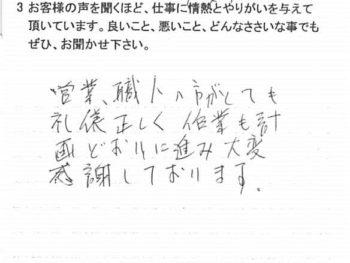 3 お客様の声を聞くほど、仕事に情熱とやりがいを与えて
頂いています。良いこと、悪いこと、どんなささいな事でも
ぜひ、お聞かせ下さい。
営業、職人の方がとても
礼儀正しく 作業も計
画どおりに進み 大変
感謝しております。